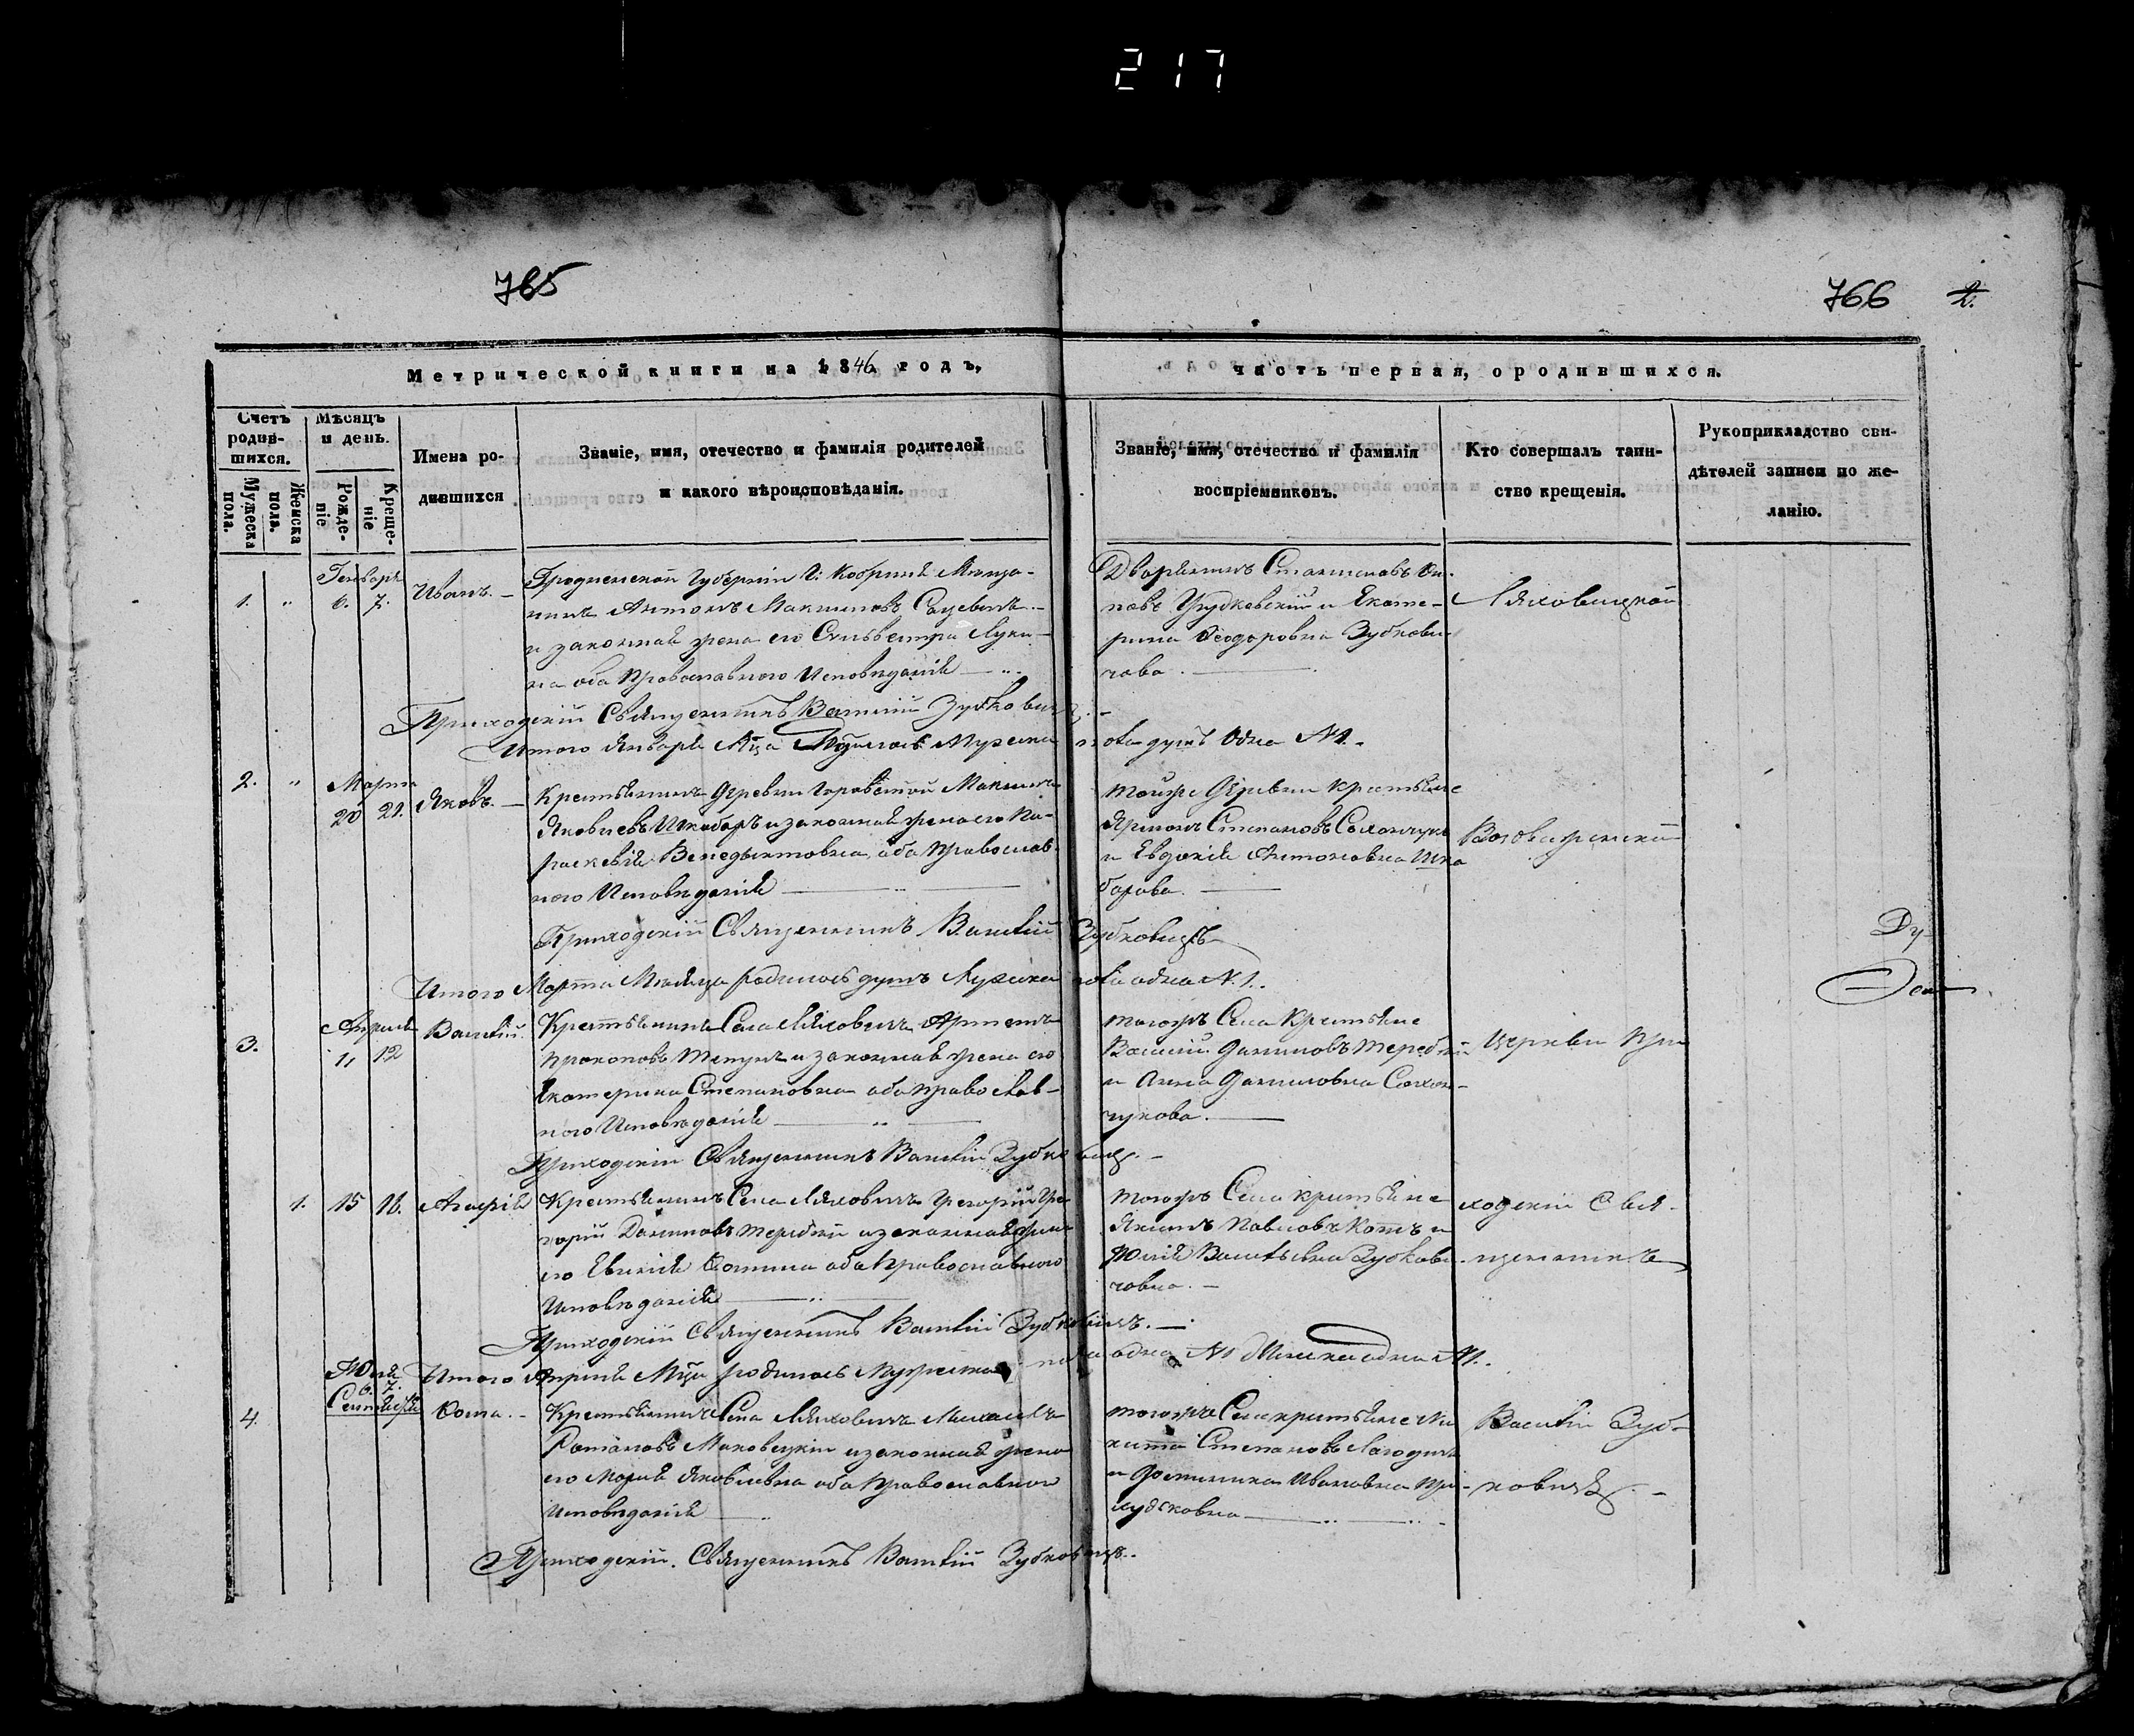 217
765
766 2.
Метрической книги на 1846 годъ,
часть первая, о родившихся.
Счетъ родив-
шихся.
Мужеска пола.
Женска пола.
Мѣсяцъ и день.
Рожде-
ніе
Креще-
ніе
Имена ро-
дившихся
Званіе, имя, отечество и фамилія родителей
и какого вѣроисповѣданія.
Званіе, имя, отечество и фамилія
воспріемниковъ.
Кто совершалъ таин-
ство крещенія.
Рукоприкладство сви-
дѣтелей записи по же-
ланію.
Генваря
1. „ 6. 7. Иванъ. —
Гродненской Губерніи Г: Кобриня Мѣща-
нинъ Антонъ Максимовъ
и законная жена его Сильвестра Луки-
на оба Православного Исповѣданія
Дворянинъ Станиславъ
и Екате-
рина Ѳеодоровна Зубкови-
чова.
Ляховицкой
Приходскій Священникъ Василій Зубковичъ. —
Итого Января Мца Родилось Мужеска пола душъ Одна №1.
Марта
2. „ 20 21. Яковъ. —
Крестьянинъ Деревни Максимъ
Яковлевъ Шкабаръ и законная жена его Па-
раскевія Венедыктовна оба Православ-
ного Исповѣданія
тойже Деревни Крестьяне
Степановъ Солончукъ
и Евдокія Антоновна Шка
барова.
Приходскій Священникъ Василій Зубковичъ
Итого Марта Мѣсяца родилось душъ Мужеска пола одна №1.
Апрѣля
3. 11 12 Василій.
Крестьянинъ Села Ляховичъ Артемъ
Прокоповъ и законная жена его
Екатерина Степановна оба православ-
ного Исповѣданія
тогожъ Села Крестьяне
Василій Даниловъ Теребей
и Анна Даниловна Солон-
чукова.
Церкви При
Приходскій Священникъ Василій Зубковичъ. —
1. 15 16. Агафія
Крестьянинъ Села Ляховичъ Григорій Гри-
горій Даниловъ Теребей и законная жена
его Ѳомина оба Православного
Исповѣданія
тогожъ Села крестьяне
Якимъ Павловъ Котъ и
Юлія Васильевна Зубкови-
човна. —
ходскій Свя-
щенникъ
Приходскій Священникъ Василій Зубковичъ. —
Итого Апрѣля Мца родилось Мужеска пола одна №1 Женска одна №1.
Юля
6. 7.
Сентября
4. Ѳома. —
Крестьянинъ Села Ляховичъ Михаилъ
Романовъ Маковецкій и законная жена
его Марія Яковлевна оба Православного
Исповѣданія
тогожъ Села крестьяне Ни
кита Степановъ
и Доминика Ивановна При-
лудсковна
Василій Зуб-
ковичъ. —
Приходскій Священникъ Василій Зубковичъ.